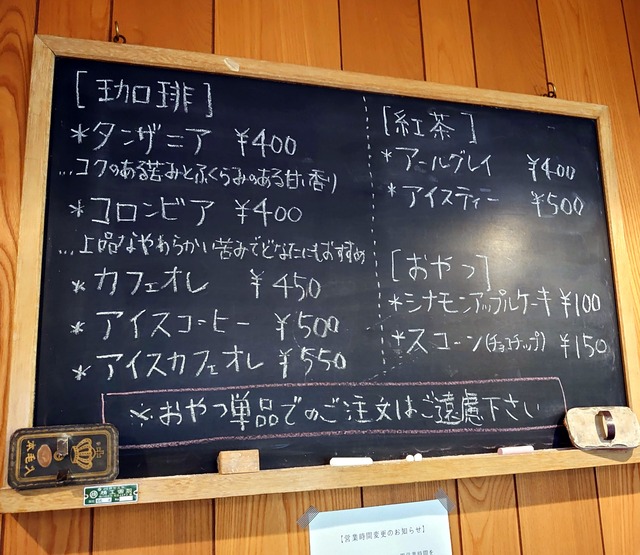 [珈琲]
*タンザニア ¥400
...コクのある苦みとふくらみのある甘い香り
*コロンビア ¥400
...上品なやわらかい苦みでどなたにもおすすめ
*カフェオレ ¥450
*アイスコーヒー ¥500
*アイスカフェオレ ¥550
[紅茶]
*アールグレイ ¥400
*アイスティー ¥500
[おやつ]
*シナモンアップルケーキ ¥100
*スコーン(チョコチップ) ¥150
※おやつ単品でのご注文はご遠慮下さい
【営業時間変更のお知らせ】